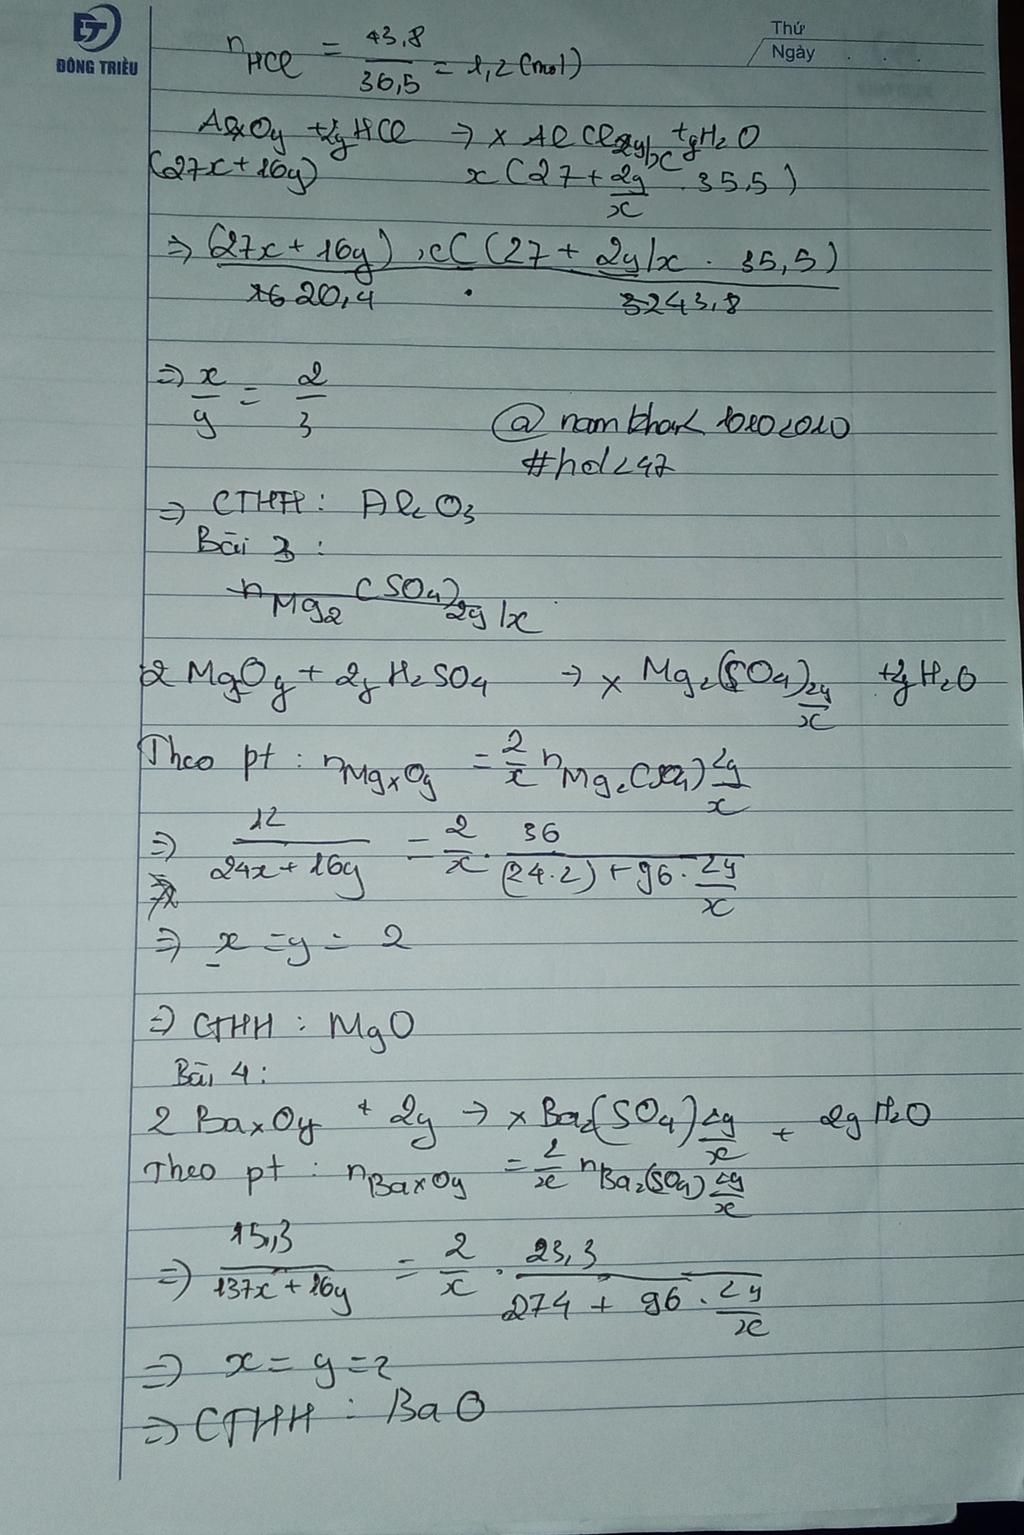 ĐT
ĐÔNG TRIỀU
Thứ
Ngày . . .
nHCl = 43,8/36,5 = 1,2 (mol)
AlxOy + 2yHCl → x AlCl2y/x + yH2O
(27x + 16y) x(27 + 2y/x . 35,5)
⇒ (27x + 16y) . x((27 + 2y/x . 35,5)
20,4 . 43,8
⇒ x/y = 2/3
#hd247
⇒ CTHH : Al2O3
Bài 3 :
nMg2(SO4)2y/x
2 MgxOy + 2y H2SO4 → x Mg2(SO4)2y/x + 2y H2O
Theo pt : nMgxOy = 2/x nMg2(SO4)2y/x
⇒ 12/(24x + 16y) = 2/x . 36/((24.2) + 96 . 2y/x)
⇒ x = y = 2
⇒ CTHH : MgO
Bài 4 :
2 BaxOy + 2y → x Ba2(SO4)2y/x + 2y H2O
Theo pt : nBaxOy = 2/x nBa2(SO4)2y/x
⇒ 15,3/(137x + 16y) = 2/x . 23,3/(274 + 96 . 2y/x)
⇒ x = y = 2
⇒ CTHH : BaO